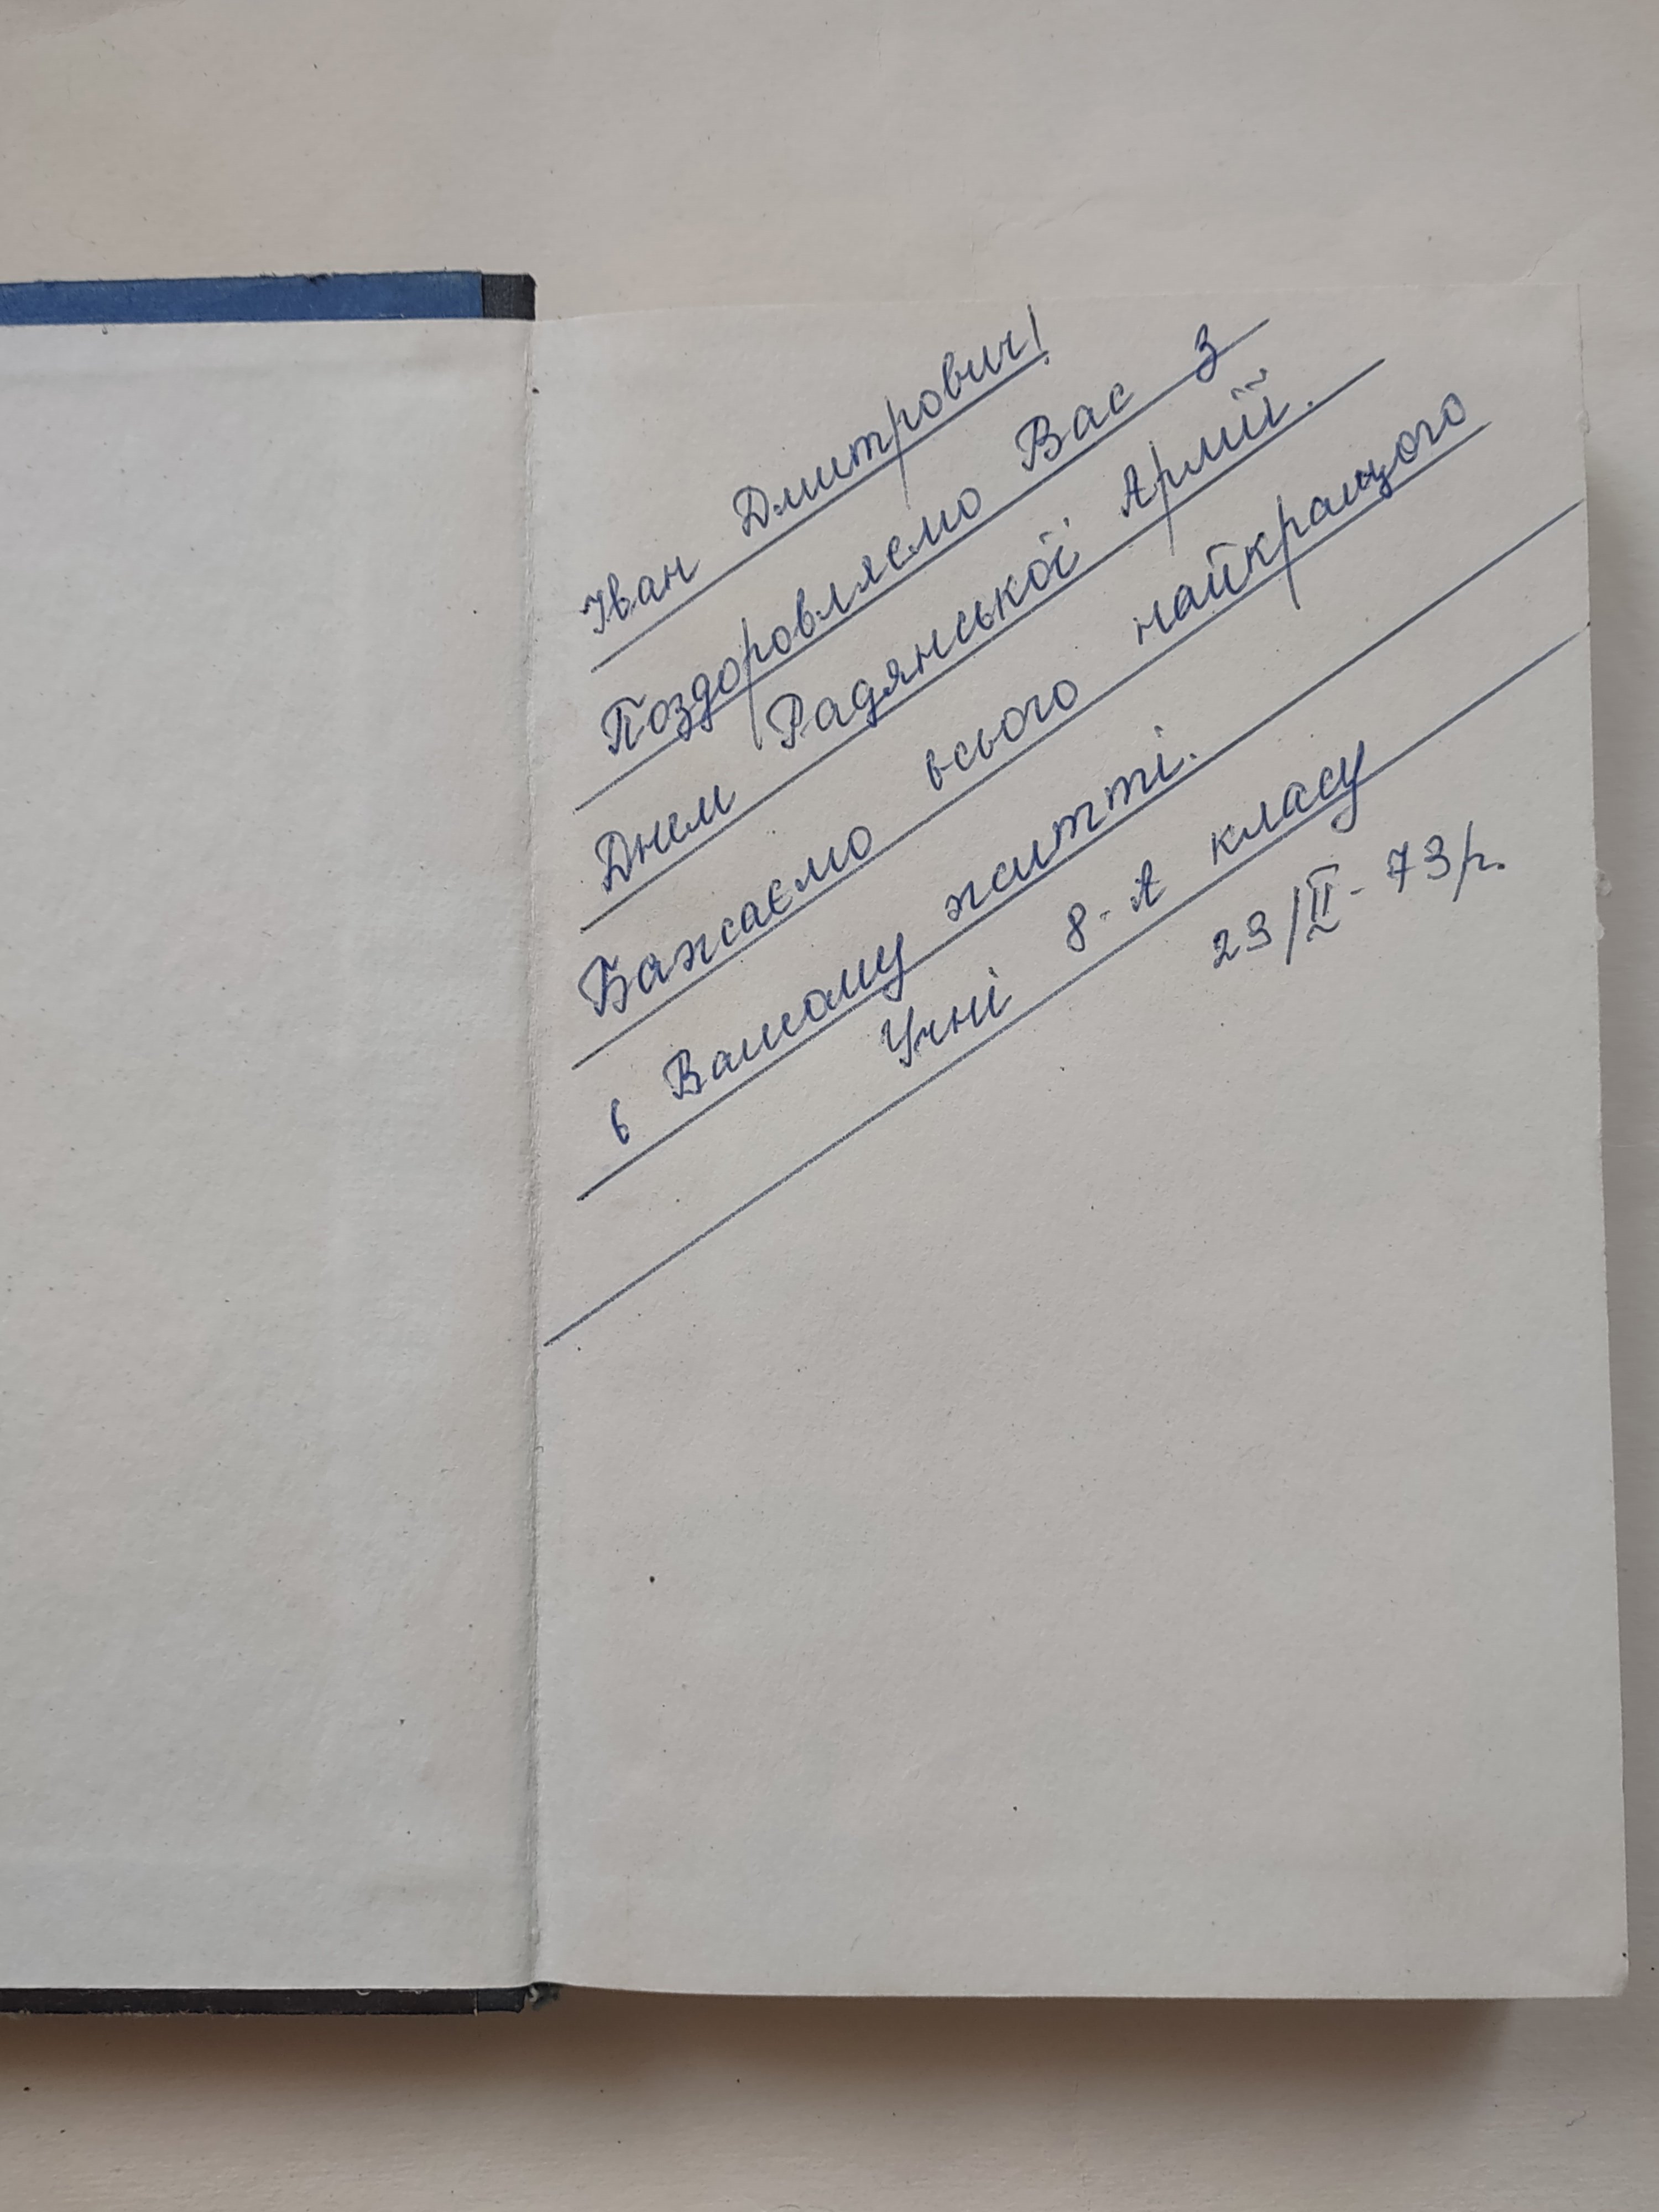 Іван Дмитрович!
Поздоровляємо Вас з
Днем Радянської Армії.
Бажаємо всього найкращого
в Вашому житті.
Учні 8-А класу
23/II-73р.